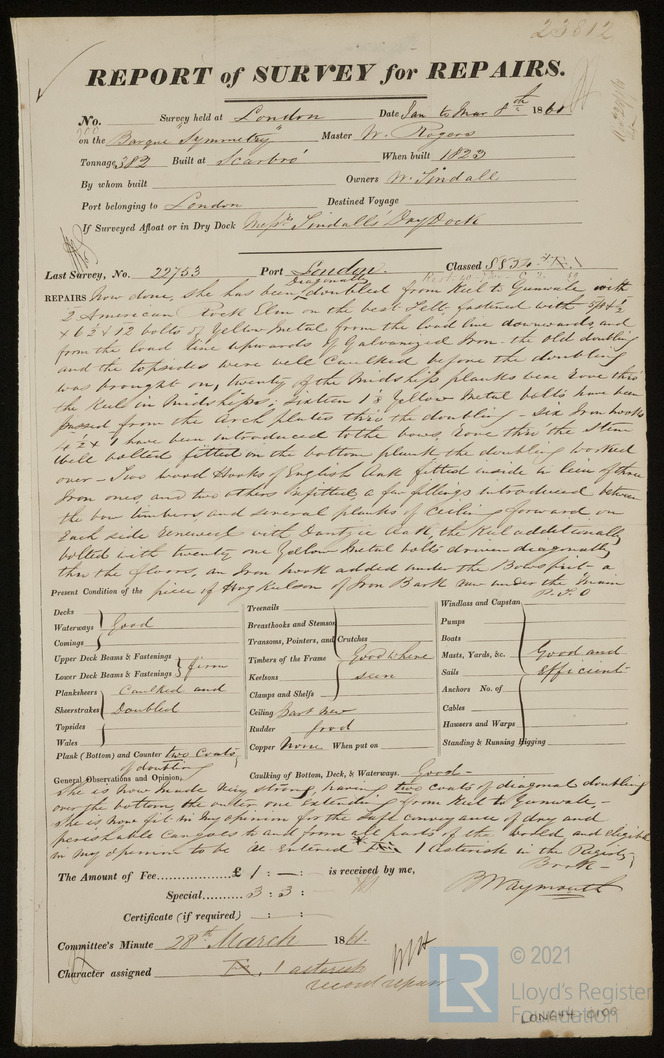 23812
REPORT of SURVEY for REPAIRS.
No. Survey held at London Date Jan to Mar 8th 1861
on the Barque "Symmetry" Master W. Rogers
Tonnage 382 Built at Scarbro' When built 1823
By whom built Owners W. Tindall
Port belonging to London Destined Voyage
If Surveyed Afloat or in Dry Dock Messrs Tindall's Dry Dock
Last Survey, No. 22753 Port London Classed
Diagonally
REPAIRS Now done, She has been doubled from Keel to Gunwale with
American Rock Elm on the best Felt fastened with
bolts of Yellow Metal from the load line downwards and
from the load line upwards of Galvanized Iron. the old doubling
and the topsides were well Caulked before the doubling
was brought on, twenty of the Midship planks were rove thro
the Keel in Midships; Sixteen 1 Yellow Metal bolts have been
passed from the arch plates thro the doubling - Six Iron hooks
have been introduced to the bows, rove thro the Stem
well bolted fitted on the bottom plank the doubling worked
over - Two wood Hooks of English Oak fitted inside in lieu of three
Iron ones, and two others refitted a few fillings introduced between
the bow timbers and several planks of Ceiling forward on
Each side renewed with Dantzic Oak, the Keel additionally
bolted with twenty one Yellow Metal bolts driven diagonally
thro the floors, an Iron hook added under the Bowsprit - a
piece of Hog Kelson of Iron Bark new under the Main
P.T.O
Present Condition of the
Decks
Waterways Good
Comings
Upper Deck Beams & Fastenings
Lower Deck Beams & Fastenings firm
Planksheers Caulked and
Sheerstrakes Doubled
Topsides
Wales
Plank (Bottom) and Counter two Coats
of doubling
Treenails
Breasthooks and Stemson
Transoms, Pointers, and Crutches
Timbers of the Frame Good where
Keelsons seen
Clamps and Shelfs
Ceiling Part New
Rudder good
Copper None When put on
Windlass and Capstan
Pumps
Boats
Masts, Yards, &c. Good and
Sails Efficient
Anchors No. of
Cables
Hawsers and Warps
Standing & Running Rigging
General Observations and Opinion, Caulking of Bottom, Deck, & Waterways. Good
She is now made very strong, having two coats of diagonal doubling
over the bottom, the outer one extending from Keel to Gunwale, -
She is now fit in my opinion for the safe conveyance of dry and
perishable Cargoes to and from all parts of the world, and eligible
in my opinion to be 1 Asterisk in the Register
Book -
The Amount of Fee £ 1 : - : is received by me,
Special 3 : 3 : B Waymouth
Certificate (if required) : - :
Committee's Minute 28th March 1861.
Character assigned 1 asterisk
record repair
LR © 2021
Lloyd's Register
Foundation